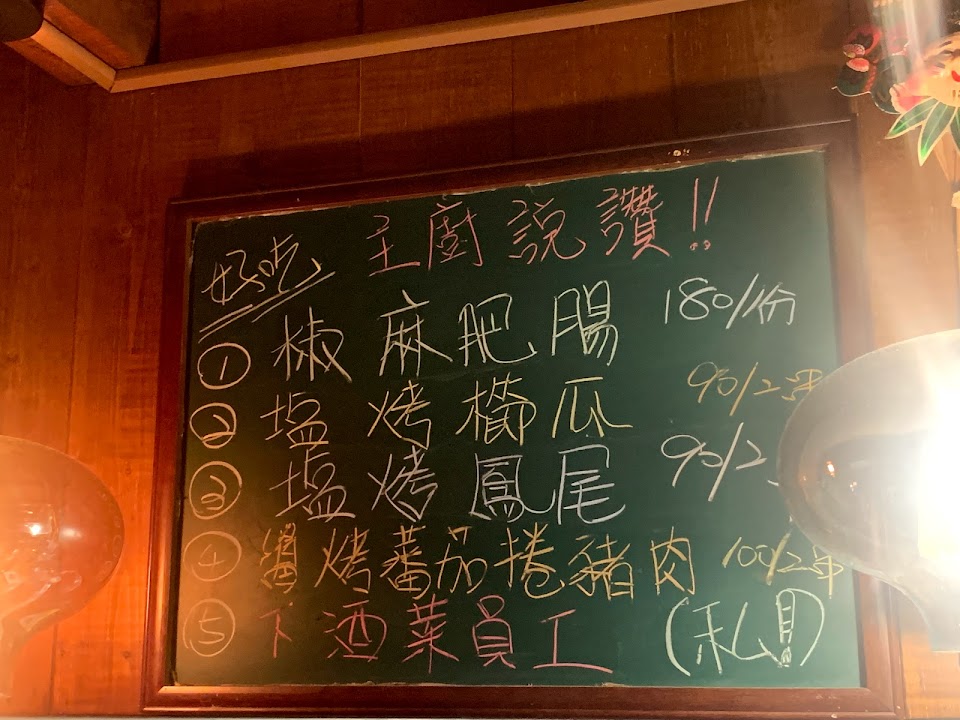 主廚說讚!!
好吃
① 椒麻肥腸 180/1份
② 塩烤櫛瓜 90/2串
③ 塩烤鳳尾 90/2
④ 烤蕃茄捲豬肉 100/2串
⑤ 下酒菜員工 (私)